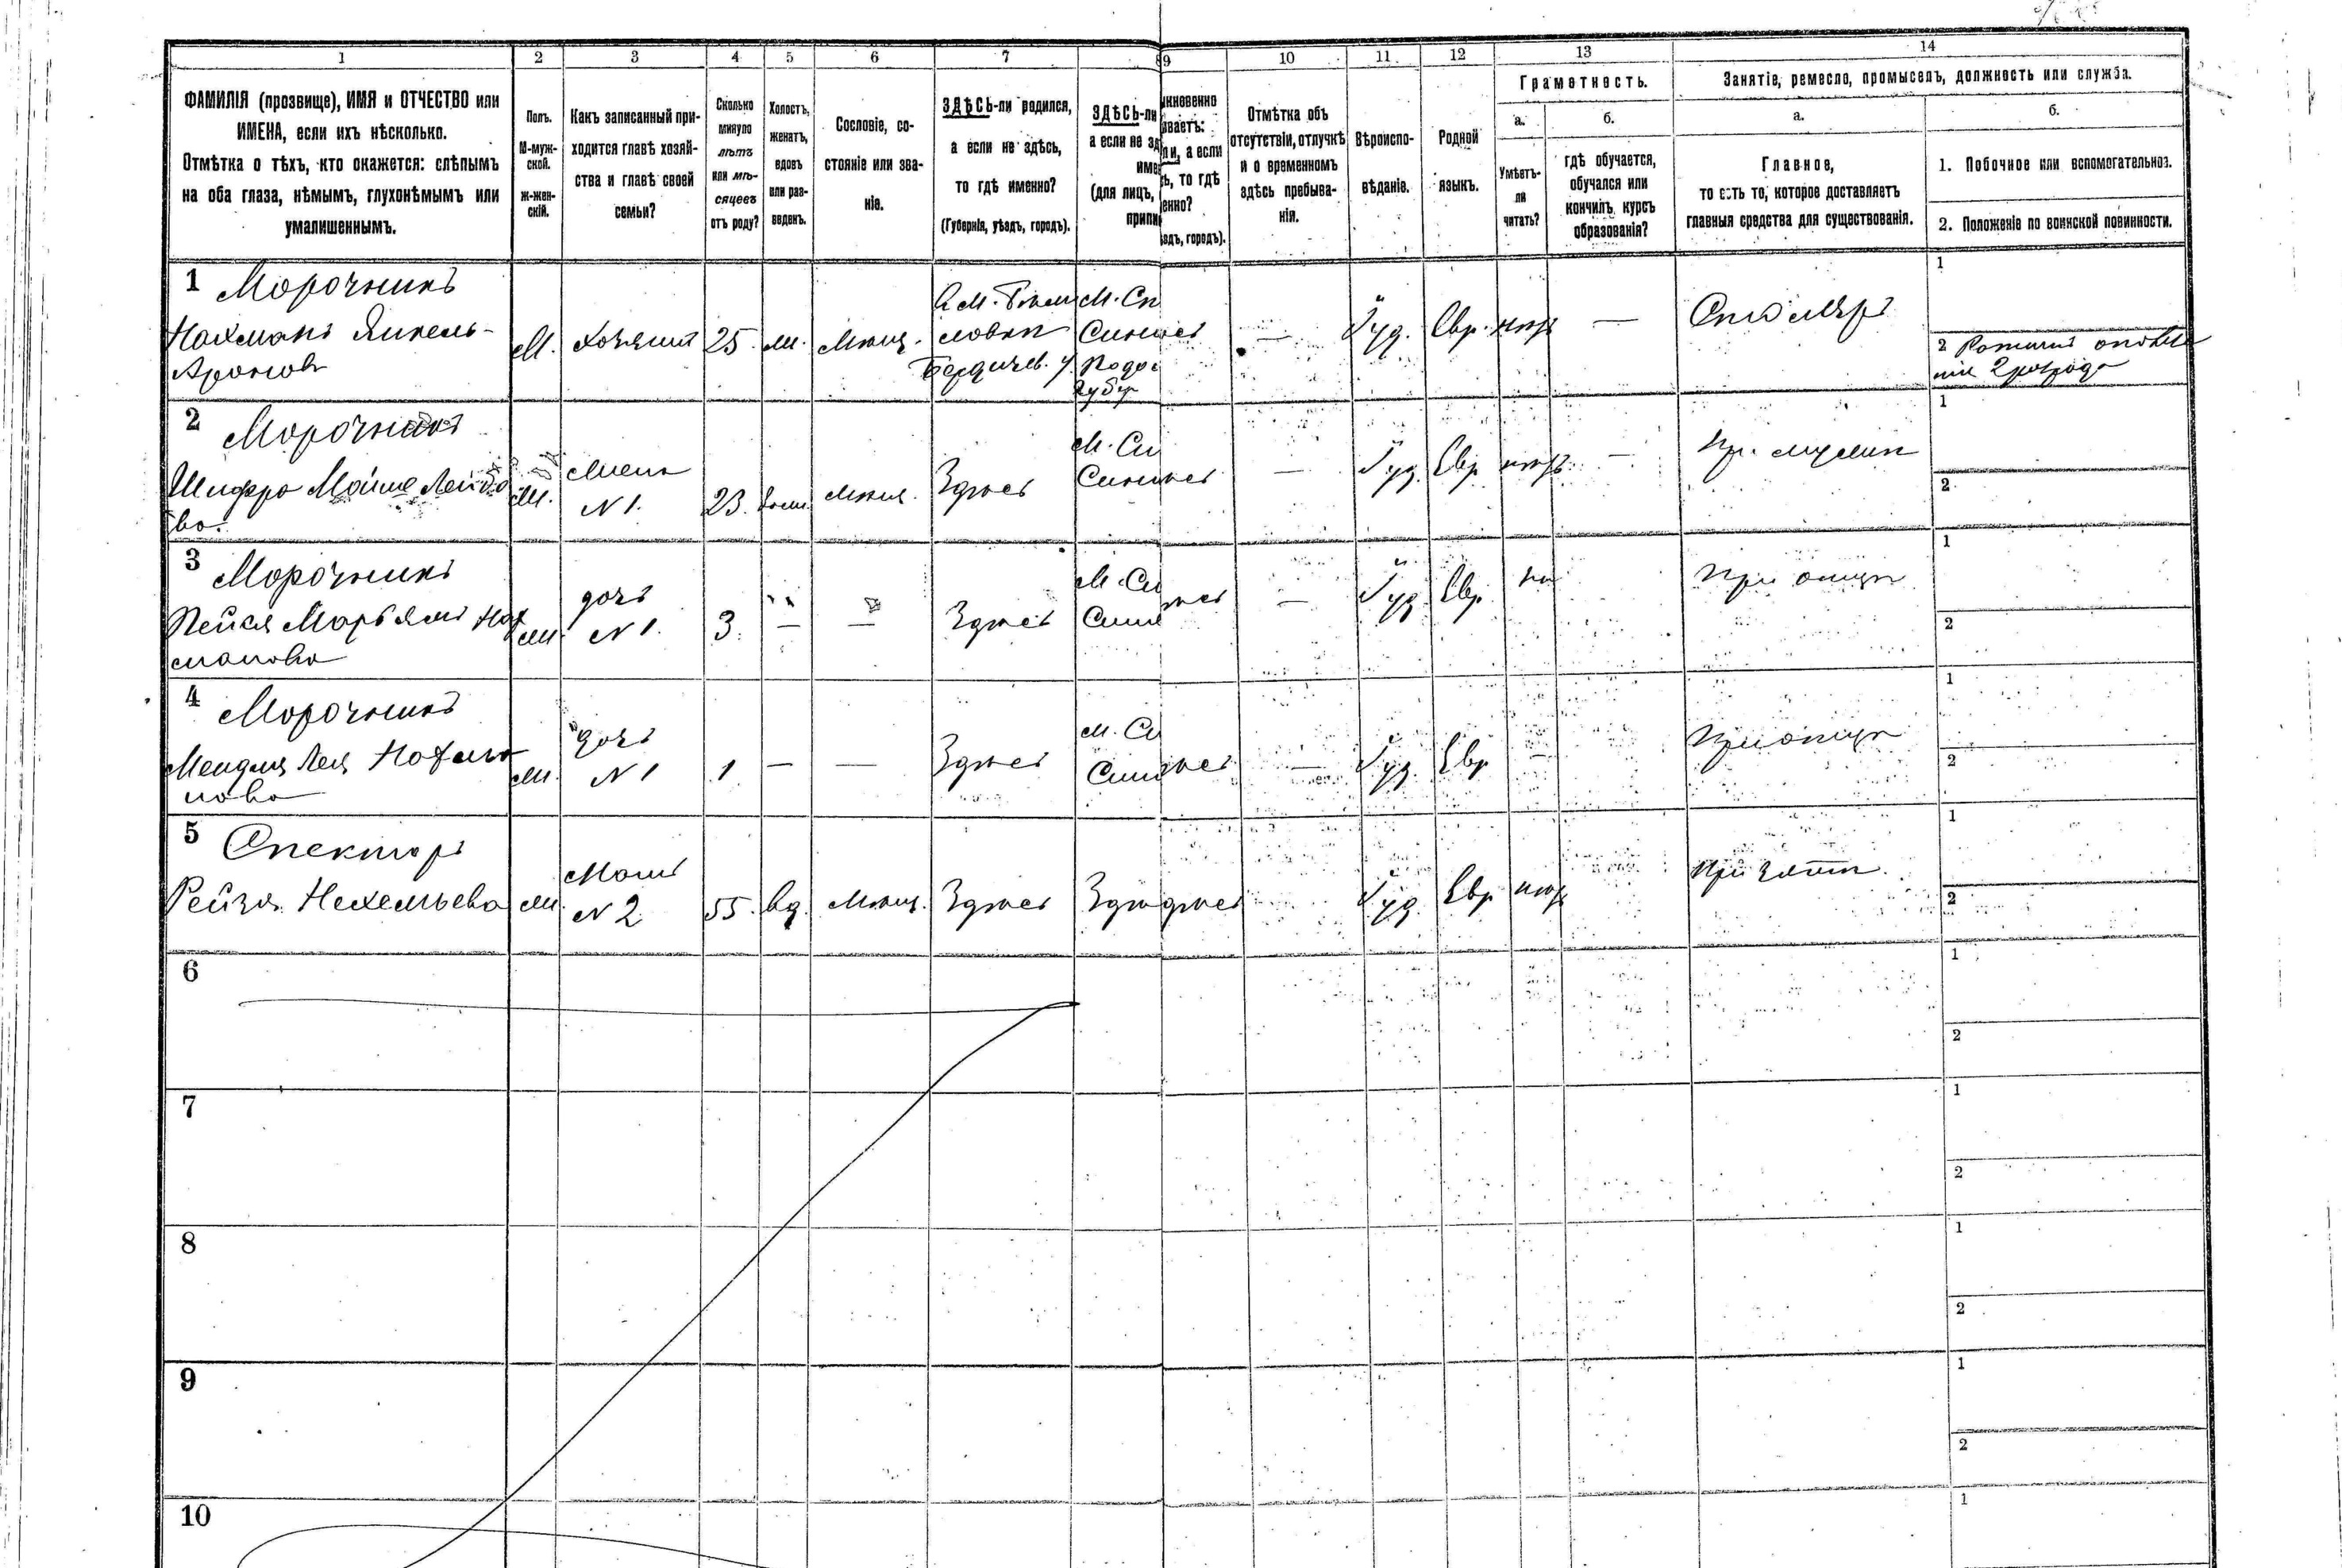 1
2
3
4
5
6
7
8
9
10
11
12
13
14
ФАМИЛІЯ (прозвище), ИМЯ и ОТЧЕСТВО или
ИМЕНА, если ихъ нѣсколько.
Отмѣтка о тѣхъ, кто окажется: слѣпымъ
на оба глаза, нѣмымъ, глухонѣмымъ или
умалишеннымъ.
Полъ.
М-муж-
ской.
ж-жен-
скій.
Какъ записанный при-
ходится главѣ хозяй-
ства и главѣ своей
семьи?
Сколько
минуло
лѣтъ
или мѣ-
сяцевъ
отъ роду?
Холостъ,
женатъ,
вдовъ
или раз-
веденъ.
Сословіе, со-
стояніе или зва-
ніе.
ЗДѢСЬ-ли родился,
а если не здѣсь,
то гдѣ именно?
(Губернія, уѣздъ, городъ).
ЗДѢСЬ-ли
а если не зд
име
(для лицъ,
припи
икновенно
ываетъ:
ли, а если
ь, то гдѣ
енно?
ѣздъ, городъ).
Отмѣтка объ
отсутствіи, отлучкѣ
и о временномъ
здѣсь пребыва-
ніи.
Вѣроиспо-
вѣданіе.
Родной
языкъ.
Грамотность.
а.
Умѣетъ-
ли
читать?
б.
гдѣ обучается,
обучался или
кончилъ курсъ
образованія?
Занятіе, ремесло, промыселъ, должность или служба.
а.
Главное,
то есть то, которое доставляетъ
главныя средства для существованія.
б.
1. Побочное или вспомогательное.
2. Положеніе по воинской повинности.
1 Морочникъ
Нахманъ Янкель-
Ароновъ
М. хозяинъ 25 ж. Мѣщ.
Бердичев. у.
М. Си
Подо
губер
— Іуд. Евр. — Столяръ
1
2
2 Морочникъ
Шифра Мойше Лейбо
ва.
ж. жена
№ 1. 23. зам. мѣщ. Здѣсь
М. Си
— Іуд. Евр.
1
2
3 Морочникъ
Пейся Марьямъ Нах
манова
ж. дочь
№ 1. 3. — — Здѣсь
М. Си
— Іуд. Евр. не При отцѣ
1
2
4 Морочникъ
Мендля Лея Нахма
нова
ж. дочь
№ 1 1 — — Здѣсь
М. Си
— Іуд. Евр. — При отцѣ
1
2
5 Спекторъ
Рейзя Нехемьева
ж. Мать
№ 2 55. вд. Мѣщ. Здѣсь Здѣ дѣсь
Іуд. Евр. При зятѣ
1
2
6
1
2
7
1
2
8
1
2
9
1
2
10
1